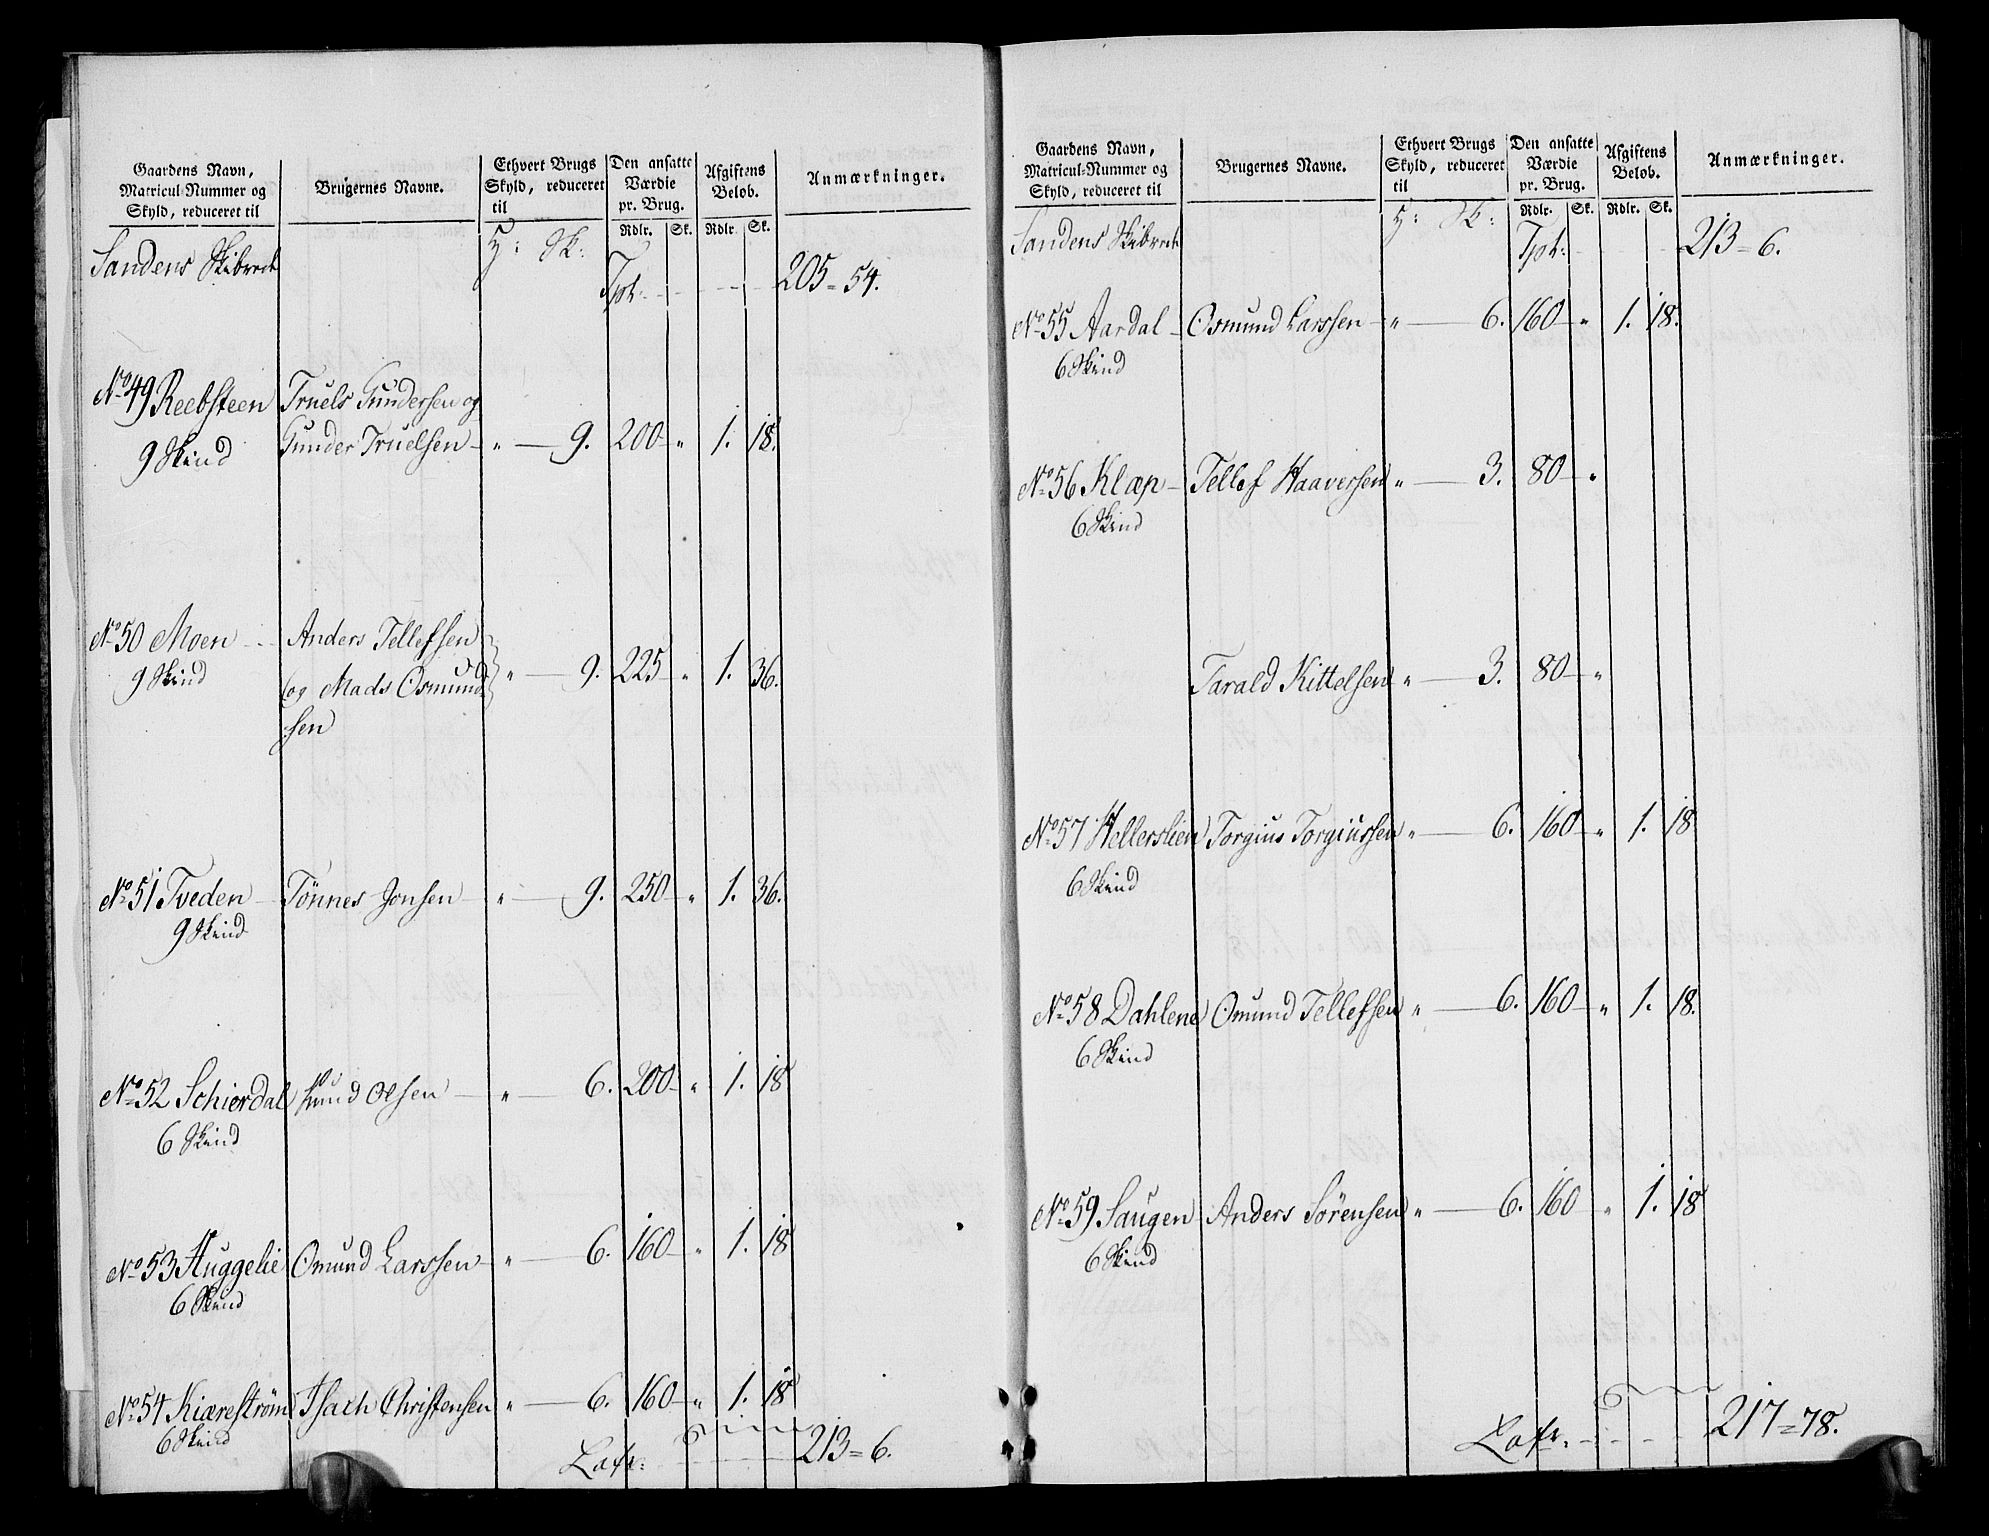 Gaardens Navn, Matricul-Nummer og Skyld, reduceret til | Brugernes Navne. | Ethvert Brugs Skyld, reduceret til | Den ansatte Værdie pr. Brug. | Afgiftens Beløb. | Anmærkninger.
Rdlr. | Sk. | Rdlr. | Sk.
Sandens Skibrede H: Sk: Tpt: 205=54.
No 49 Reebsteen Truels Gundersen og
9 Skind Gunder Truelsen „ 9. 200 „ 1. 18.
No 50 Moen Anders Tellefsen
9 Skind og Mads Osmund „ 9. 225 „ 1. 36.
sen
No 51 Tveden Tønnes Jonsen „ 9. 250 „ 1. 36.
9 Skind
No 52 Schierdal Knud Olsen „ 6. 200 „ 1. 18
6 Skind
No 53 Huggelie Omund Larssen „ 6. 160 „ 1. 18
6 Skind
No 54 Kiærestrøm Isach Christensen „ 6. 160 „ 1. 18
6 Skind
Latr: 213=6.
Gaardens Navn, Matricul-Nummer og Skyld, reduceret til | Brugernes Navne. | Ethvert Brugs Skyld, reduceret til | Den ansatte Værdie pr. Brug. | Afgiftens Beløb. | Anmærkninger.
Rdlr. | Sk. | Rdlr. | Sk.
Sandens Skibrede H: Sk: Tpt: 213=6.
No 55 Aardal Osmund Larssen „ 6. 160 „ 1. 18.
6 Skind
No 56 Klæp Tellef Haaversen „ 3. 80 „
6 Skind
Tarald Kittelsen „ 3. 80 „
No 57 Hellerslien Torgius Torgiussen „ 6. 160 „ 1. 18
6 Skind
No 58 Dahlene Omund Tellefsen „ 6. 160 „ 1. 18.
6 Skind
No 59 Saugen Anders Sørensen „ 6. 160 „ 1. 18
6 Skind
Latr: 217=78.